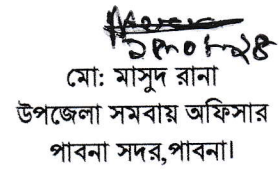 মো: মাসুদ রানা
উপজেলা সমবায় অফিসার
পাবনা সদর,পাবনা।